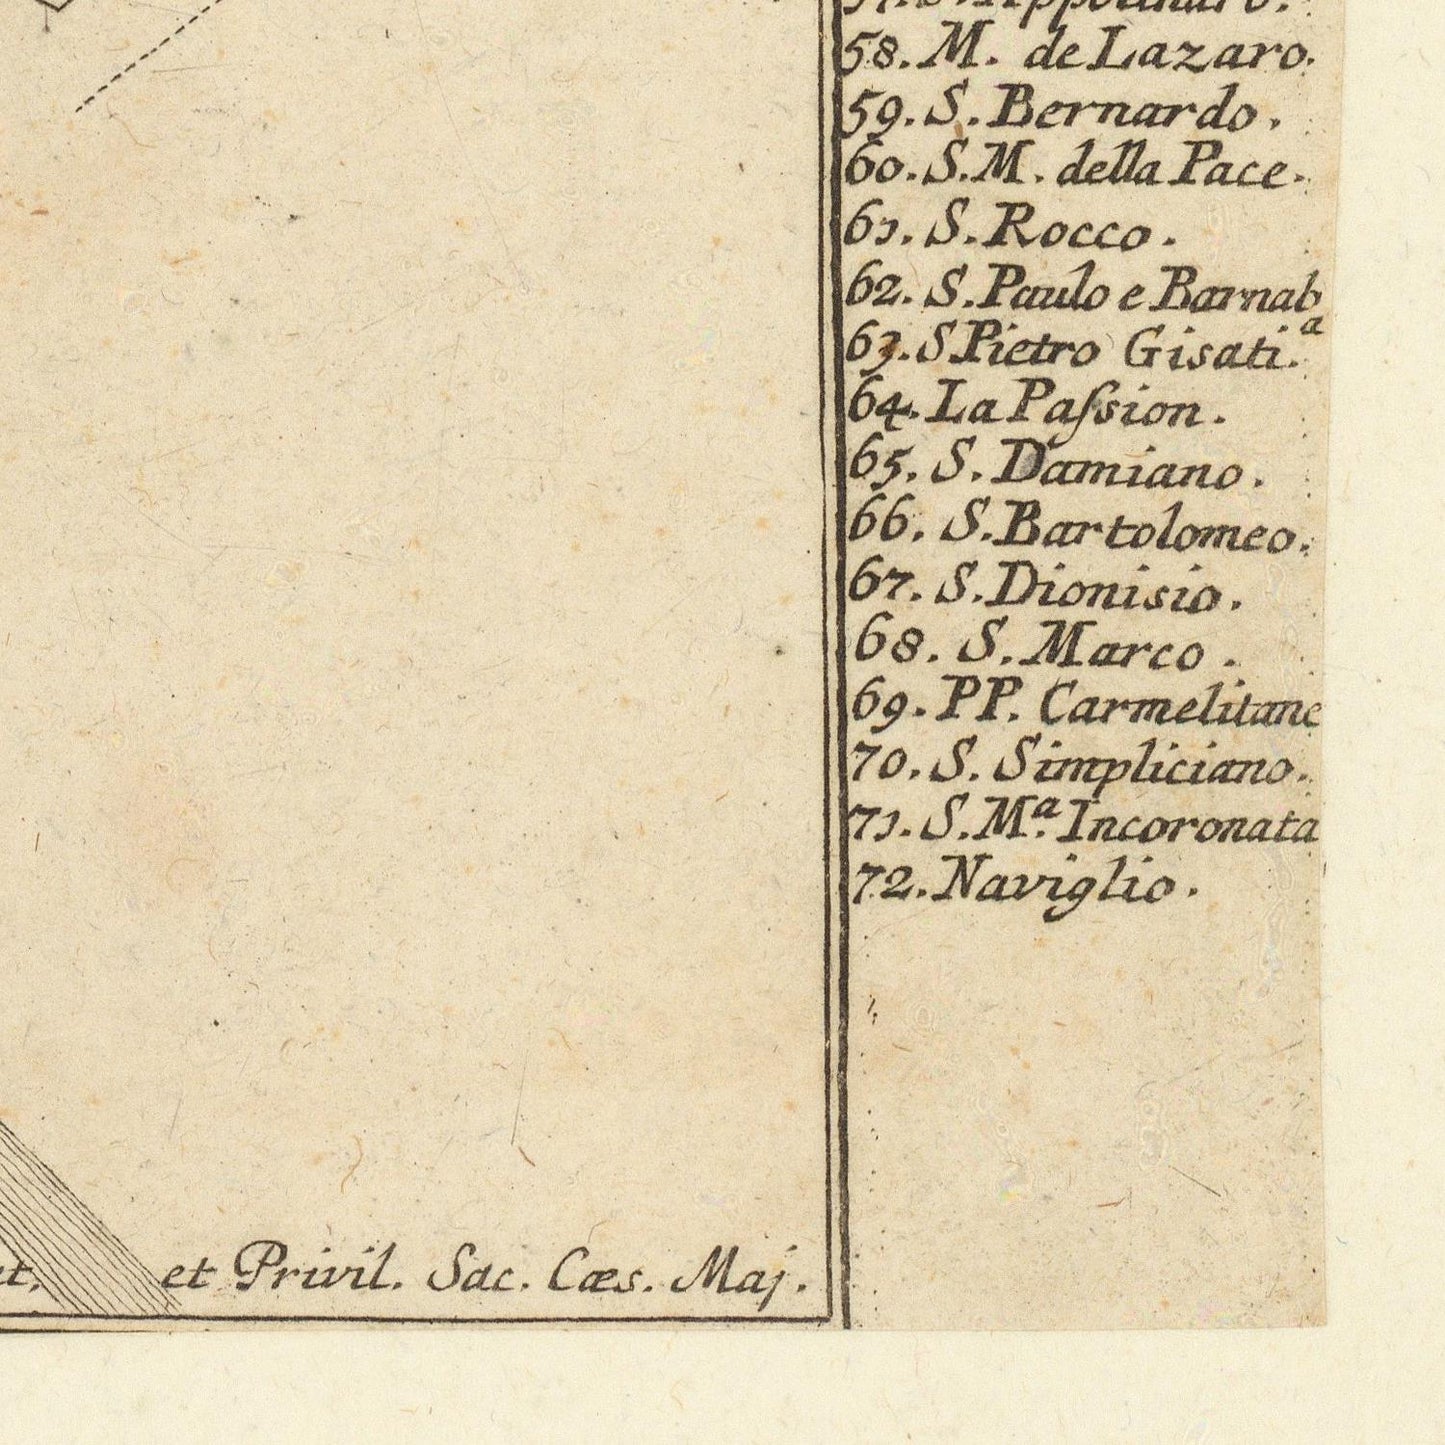 58. M. de Lazaro.
59. S. Bernardo.
60. S. M. della Pace.
61. S. Rocco.
62. S. Paulo e Barnab
63. S Pietro Gisati.ª
64. La Paſsion.
65. S. Damiano.
66. S. Bartolomeo.
67. S. Dionisio.
68. S. Marco.
69. PP. Carmelitane
70. S. Simpliciano.
71. S. Mª. Incoronata
72. Naviglio.
et Privil. Sac. Cæs. Maj.